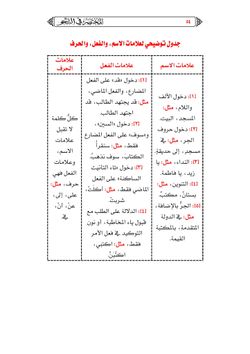 ٤٤
الملخص في النحو
جدول توضيحي لعلامات الاسم، والفعل، والحرف
علامات الاسم
علامات الفعل
علامات
الحرف
(١): دخول الألف
واللام، مثل:
المسجد، البيت.
(٢): دخول حروف
الجر، مثل: في
مسجد، إلى حديقةٍ.
(٣): النداء، مثل: يا
زيد، يا فاطمة.
(٤): التنوين، مثل:
بستانٌ، مكتبٌ.
(٥): الجرُّ بالإضافة،
مثل: في الدولة
المتقدمة، بالمكتبة
القيمة.
(١): دخول «قد» على الفعل
المضارع، والفعل الماضي،
مثل: قد يجتهد الطالب، قد
اجتهد الطالب.
(٢): دخول «السين»،
و«سوف» على الفعل المضارع
فقط، مثل: سنقرأ
الكتاب، سوف نذهبُ.
(٣): دخول «تاء التأنيث
الساكنة» على الفعل
الماضي فقط، مثل: أكلتْ،
شربتْ.
(٤): الدلالة على الطلب مع
قبول ياء المخاطبة، أو نون
التوكيد في فعل الأمر
فقط، مثل: اكتبي،
اكتُبَنَّ.
كلُّ كلمة
لا تقبل
علامات
الاسم،
وعلامات
الفعل فهي
حرف، مثل:
على، إلى،
عنْ، أنْ،
في.